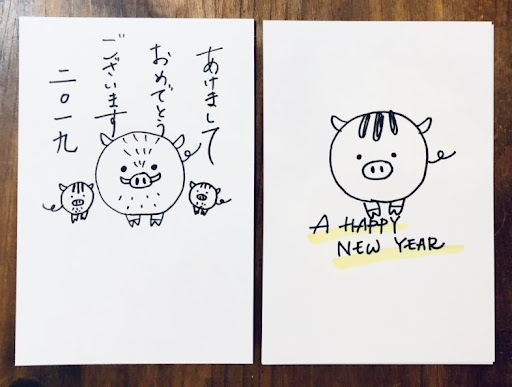 あけまして
おめでとう
ございます
二〇一九
A HAPPY
NEW YEAR